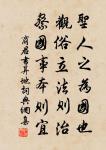 聖人之為國也
觀俗立法則治
察國事本則宜
商君書算地詞典網集